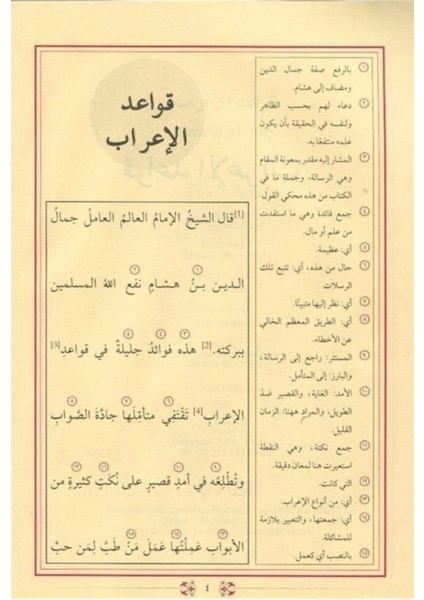 قواعد
الإعراب
[1] قال الشيخُ الإمامُ العالمُ العاملُ جمالُ
الدين بنُ هشامٍ نفع اللهُ المسلمين
ببركته. [2] هذه فوائدُ جليلةٌ في قواعدِ [3]
الإعرابِ [4] تَقْتَفِي متأمِّلَها جادَّةَ الصَّوابِ
وتُطْلِعُه في أمدٍ قصيرٍ على نُكَتٍ كثيرةٍ من
الأبوابِ عَمِلْتُها عَمَلَ مَنْ طَبَّ لِمَن حبَّ
١ بالرفع صفة جمال الدين
ومضاف إلى هشام.
٢ دعاء لهم بحسب الظاهر
ولنفسه في الحقيقة بأن يكون
علمه منتفعًا به.
٣ المشار إليه مقدر بمعونة المقام
وهي الرسالة، وجملة ما في
الكتاب من هذه محكي القول.
٤ جمع فائدة وهي ما استفدت
من علم أو مال.
٥ أي: عظيمة.
٦ حال من هذه، أي: تتبع تلك
الرسلات
٧ أي: نظر إليها متبينًا.
٨ أي: الطريق المعظم الخالي
عن الأخطاء.
٩ المستتر: راجع إلى الرسالة،
والبارز: إلى المتأمل.
١٠ الأمد: الغاية، والقصير ضدّ
الطويل، والمراد ههنا: الزمان
القليل.
١١ جمع نكتة، وهي النقطة
استعيرت هنا لمعان دقيقة.
١٢ التي كانت.
١٣ أي: من أنواع الإعراب.
١٤ أي: جمعتها، والتعبير بلازمة
للمشاكلة.
١٥ بالنصب أي كعمل.
٤